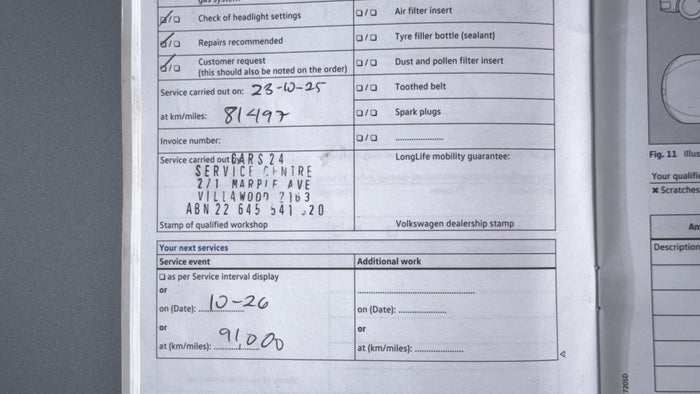 Check of headlight settings
Repairs recommended
Customer request
(this should also be noted on the order)
Service carried out on: 23-10-25
at km/miles: 81497
Invoice number:
Service carried out
CARS 24
SERVICE CENTRE
271 MARPLE AVE
VILLAWOOD 2163
ABN 22 645 541 20
Stamp of qualified workshop
Air filter insert
Tyre filler bottle (sealant)
Dust and pollen filter insert
Toothed belt
Spark plugs
LongLife mobility guarantee:
Volkswagen dealership stamp
Your next services
Service event
as per Service interval display
or
on (Date): 10-26
or
at (km/miles): 91,000
Additional work
on (Date):
or
at (km/miles):
Fig. 11 Illus
Your qualifi
× Scratches
Am
Description